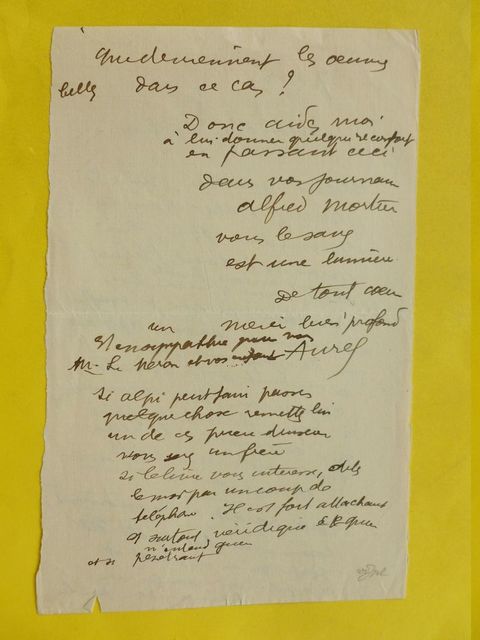 que deviennent les œuvres
belles dans ce cas ?
Donc aidez moi
à lui donner quelque réconfort
en passant ceci
dans vos journaux
Alfred Mortier
vous le savez
est une lumière
De tout cœur
un merci très profond
et ma sympathie pour vous
Mr. Le et vos enfants Aurel
Si peut faire passer
quelque chose remettez lui
un de ces
vous un frère
si le livre vous intéresse, dites
le moi par un coup de
téléphone. Il est fort attachant
et surtout véridique
n'entend
et si pénétrant